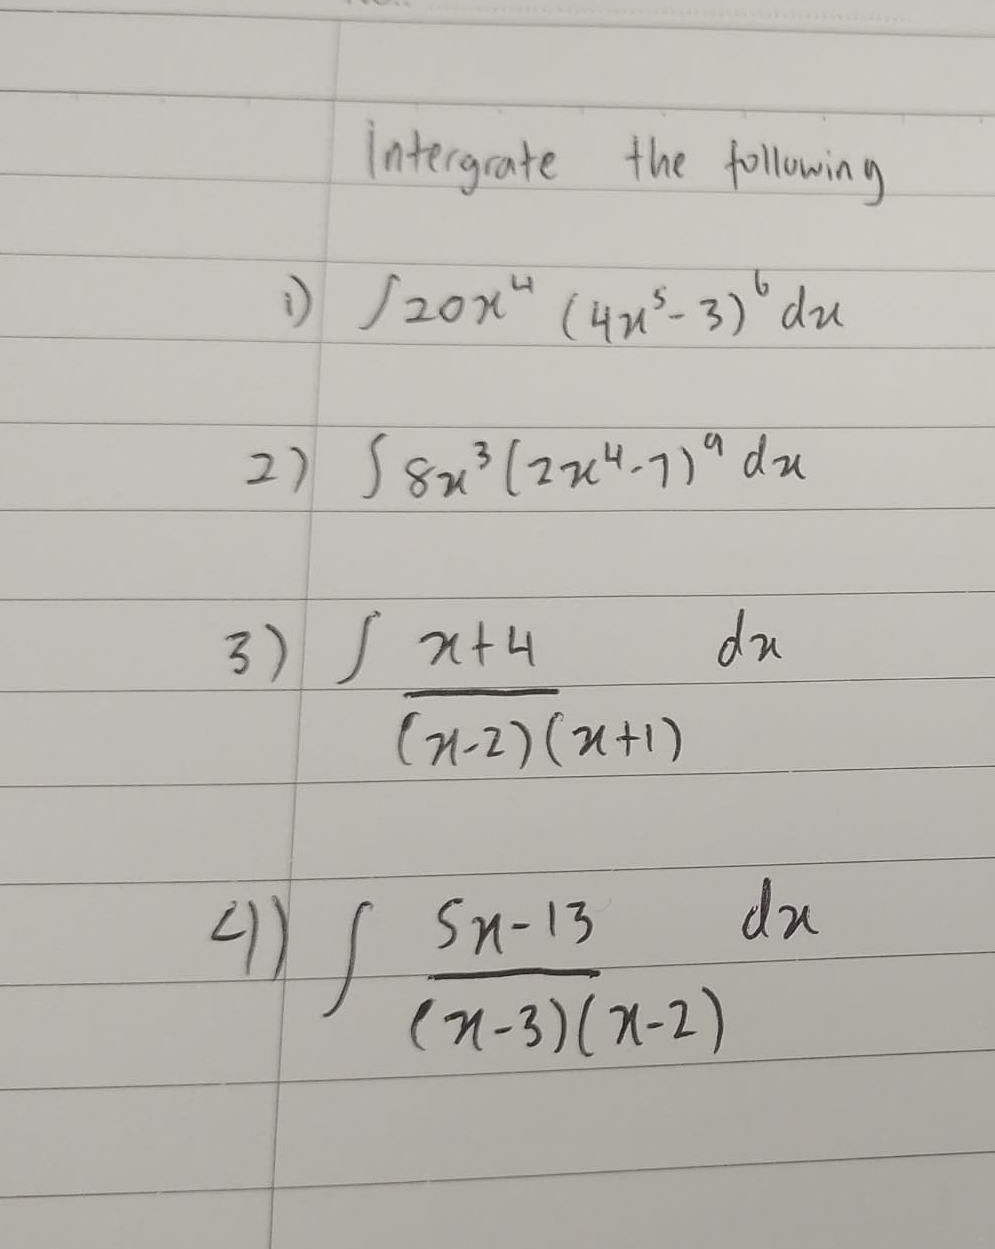 Intergrate the following
1) ∫20x⁴ (4x⁵-3)⁶ dx
2) ∫8x³(2x⁴-7)⁹ dx
3) ∫ x+4 dx
(x-2)(x+1)
4) ∫ 5x-13 dx
(x-3)(x-2)